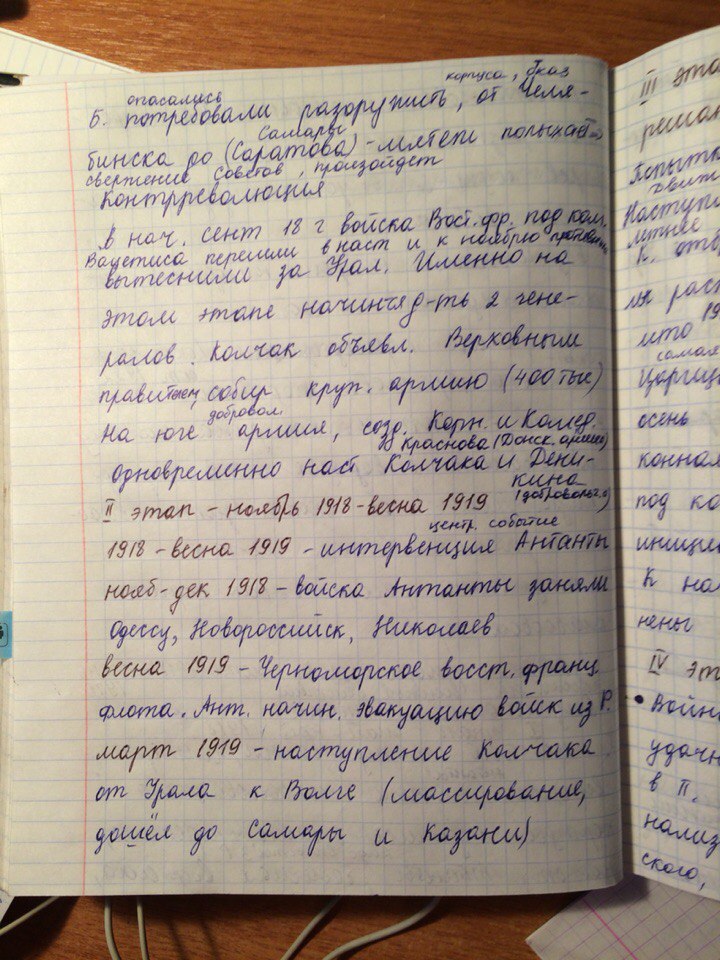 корпуса, отказ
опасались
Б. потребовали разоружить, от Челя-
Самары
бинска до (Саратова) - мятежи полыхают
свержение Советов, произойдет
контрреволюция
В нач. сент 18 г войска Вост. фр. под ком.
Вацетиса перешли в наст и к ноябрю
вытеснили за Урал. Именно на
этом этапе начин д-ть 2 гене-
ралов. Колчак объявл. Верховным
правителем, собир круп. армию (400 тыс)
добровол.
На юге армия, созд. Корн. и Калед.
Краснова (Донск. армия)
одновременно наст Колчака и Дени-
кина
II этап - ноябрь 1918 - весна 1919 (добровольч.)
центр. событие
1918 - весна 1919 - интервенция Антанты
нояб-дек 1918 - войска Антанты заняли
Одессу, Новороссийск, Николаев
весна 1919 - Черноморское восст. франц.
флота. Ант. начин. эвакуацию войск из Р.
март 1919 - наступление Колчака
от Урала к Волге (массирование,
дошёл до Самары и Казани)
III эта
решаю
Попытк
Наступи
летнее
К. отб
рас
что 19
самая
Цариц
осень
конная
под ко
иници
К на
нены
IV эт
• Войн
удачн
в П.
нализ
ского,